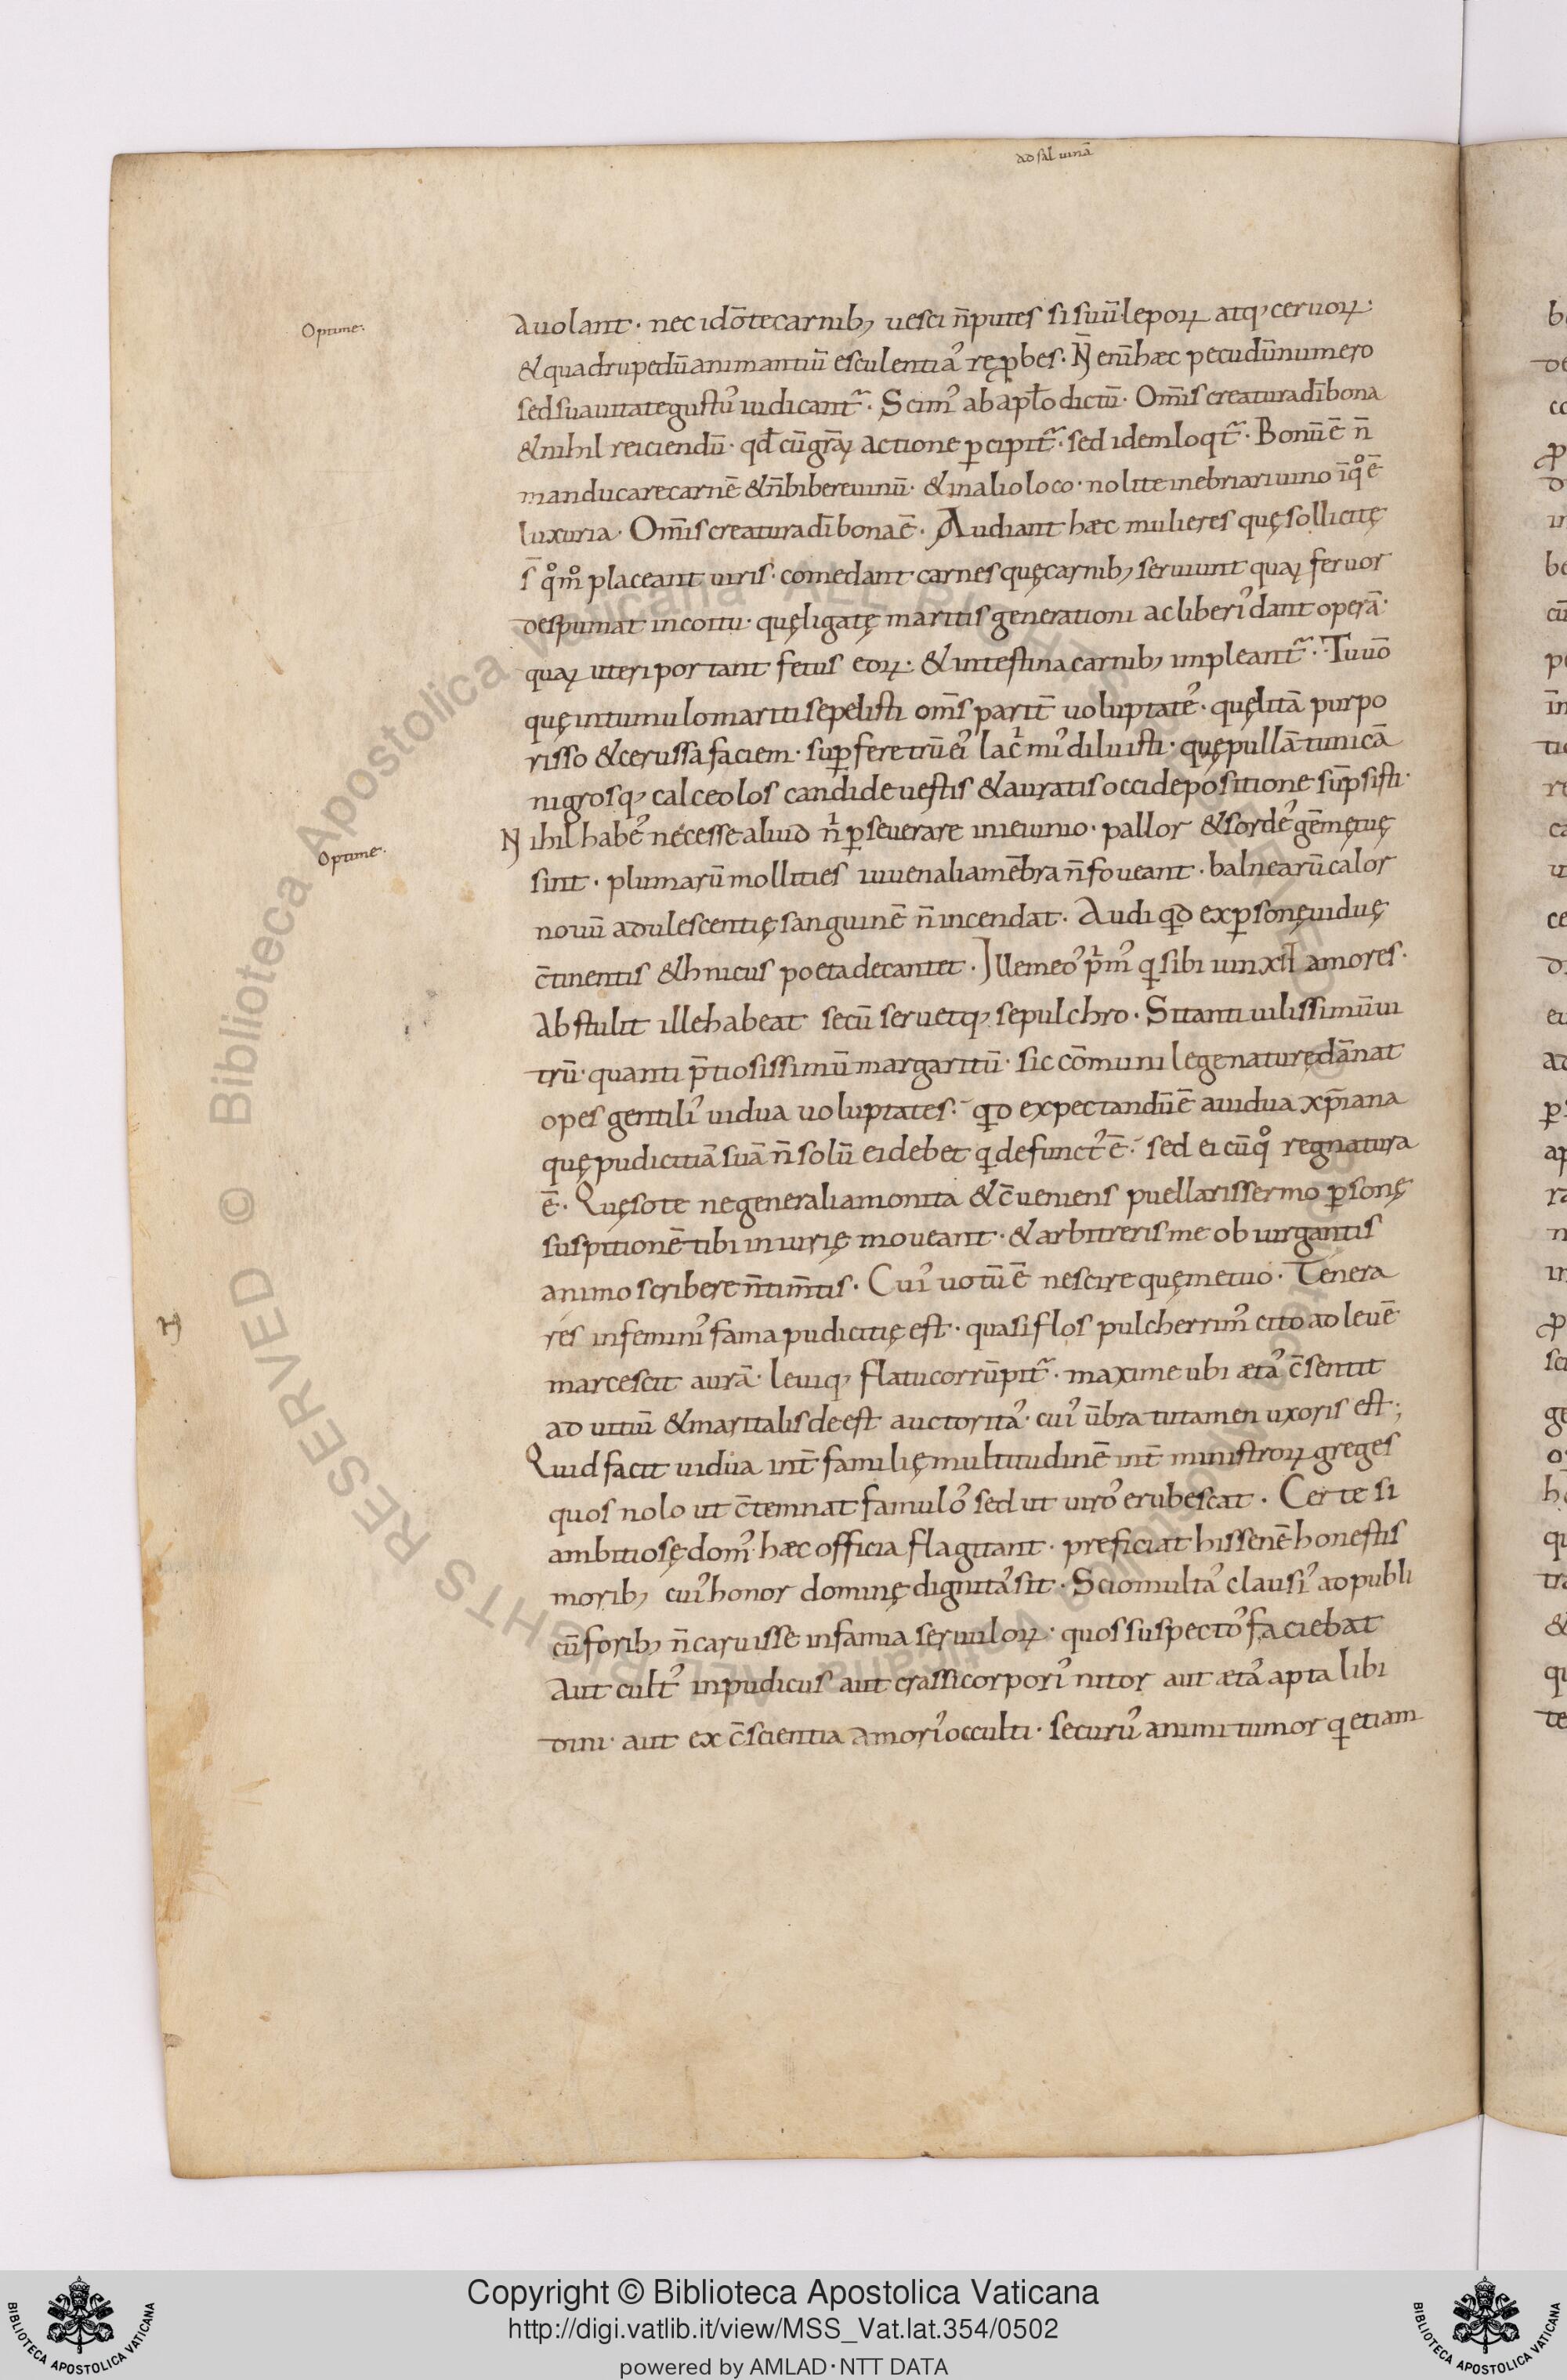 ad sal uinā
Optime·
auolant· nec idō te carnib; uesci n̄ putes si suū· lepoꝝ atq; ceruoꝝ·
& quadrupedū animantiū esculentiaʼ reꝓbes· N̄ enī hæc pecudū numero
sed suauitate gustuʼ iudicant᷑· Scimʼ ab apƚo dictū· Om̄is creatura dī bona
& nihil reiciendū· qđ cū gr̄aꝝ actione ꝑcipit᷑· sed idem loqt᷑· Bonū ē n̄
manducare carnē & n̄ bibere uinū· & in alio loco· nolite inebriari uino ī qͦ ē
luxuria· Om̄is creatura dī bona ē· Audiant hæc mulieres quę sollicitę
s̄ qͦmͦ placeant uiris· comedant carnes quę carnib; seruiunt quaꝝ feruor
despumat in coitu· quę ligatę maritis generationi ac liberiʼ dant operā·
quaꝝ uteri portant fetus eoꝝ· & intestina carnib; impleant᷑· Tu uō
quę in tumulo mariti sepelisti om̄s parit̄ uoluptateʼ· quę litā purpo
risso & cerussa faciem· suꝑ feretrū eiʼ lac̄miʼ diluisti· quę pullā tunicā
nigrosq; calceolos candide uestis & aurati socci depositione sūpsisti·
Nihil habeʼ necesse aliud n̄ ꝑseuerare in ieiunio· pallor & sordeʼ gēmę tuę
Optime·
sint· plumarū mollities iuuenalia mēbra n̄ foueant· balnearū calor
nouū adulescentię sanguinē n̄ incendat· Audi qd ex ꝑsonę uiduę
c̄tinentis &hnicus poeta decantet· Ille meoʼ pͥmʼ q sibi iunxit amores·
Abstulit ille habeat secū seruetq; sepulchro· Si tanti uilissimū ui
trū· quanti p̄tiosissimū margaritū· sic cōmuni lege naturę dānat
opes gentiliʼ uidua uoluptates· qd expectandū ē a uidua xp̄iana
quę pudicitiā suā n̄ solū ei debet q defunctʼ ē· sed ei cū qͦ regnatura
ē· Quęso te ne generalia monita & c̄ueniens puellaris sermo ꝑsonę
suspitionē tibi iniurię moueant· & arbitreris me ob uirgantis
animo scribere n̄ tim̄tis· Cuiʼ uotū ē nescire quę metuo· Tenera
res in feminiʼ fama pudicitię est· quasi flos pulcherrimʼ cito ad leuē
marcescit aurā· leuiq; flatu corrūpit᷑· maxime ubi ætaʼ c̄sentit
ad uitiū & maritalis deest auctoritaʼ· cuiʼ ūbra tutamen uxoris est;
Quid facit uidua int̄ familię multitudinē int̄ ministroꝝ greges
quos nolo ut c̄temnat famuloʼ sed ut uiroʼ erubescat· Certe si
ambitiosę domʼ hæc officia flagitant· preficiat his senē honestis
morib; cuiʼ honor dominę dignitaʼ sit· Scio multaʼ clausiʼ ad publi
cū forib; n̄ caruisse infamia seruuloꝝ· quos suspectoʼ faciebat
aut cultʼ inpudicus aut crassi corporiʼ nitor aut ætaʼ apta libi
dini· aut ex c̄scientia amoriʼ occulti· securuʼ animi tumor q etiam
Copyright © Biblioteca Apostolica Vaticana
http://digi.vatlib.it/view/MSS_Vat.lat.354/0502
powered by AMLAD·NTT DATA